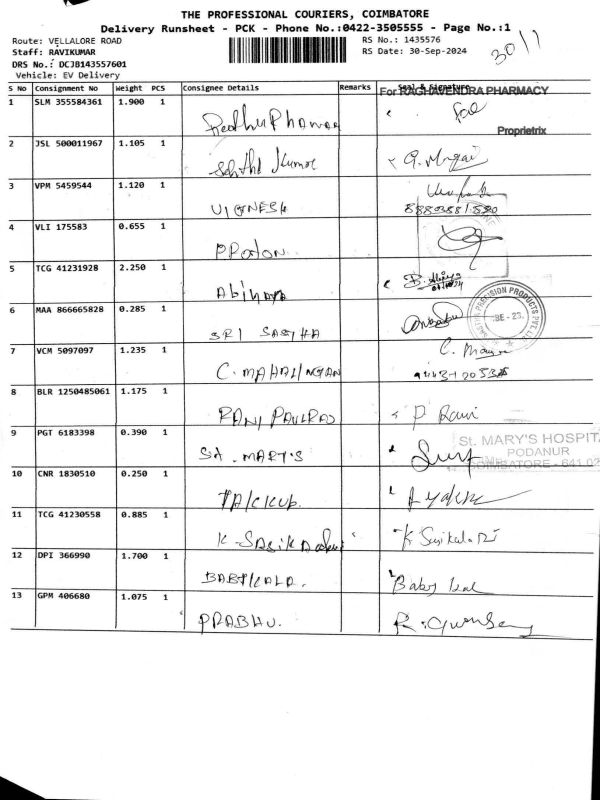 THE PROFESSIONAL COURIERS, COIMBATORE
Delivery Runsheet - PCK - Phone No.:0422-3505555 - Page No.:1
Route: VELLALORE ROAD
Staff: RAVIKUMAR
DRS No.: DCJB143557601
Vehicle: EV Delivery
RS No.: 1435576
RS Date: 30-Sep-2024
30/1
S No Consignment No Weight PCS Consignee Details Remarks Seal & Signature
For RAGHAVENDRA PHARMACY
1 SLM 355584361 1.900 1
Proprietrix
2 JSL 500011967 1.105 1 Kumar
3 VPM 5459544 1.120 1 VIGNESH
4 VLI 175583 0.655 1
5 TCG 41231928 2.250 1 Abinaya
6 MAA 866665828 0.285 1 SRI
PRECISION PRODUCTS PVT. LTD
7 VCM 5097097 1.235 1 C. MAHALINGAM C.
8 BLR 1250485061 1.175 1 RANI PAULRAJ P Rani
9 PGT 6183398 0.390 1 ST. MARY'S
St. MARY'S HOSPITA
PODANUR
COIMBATORE - 641 02
10 CNR 1830510 0.250 1
11 TCG 41230558 0.885 1 K
12 DPI 366990 1.700 1 BABYKALA. Baby kal
13 GPM 406680 1.075 1 PRABHU.